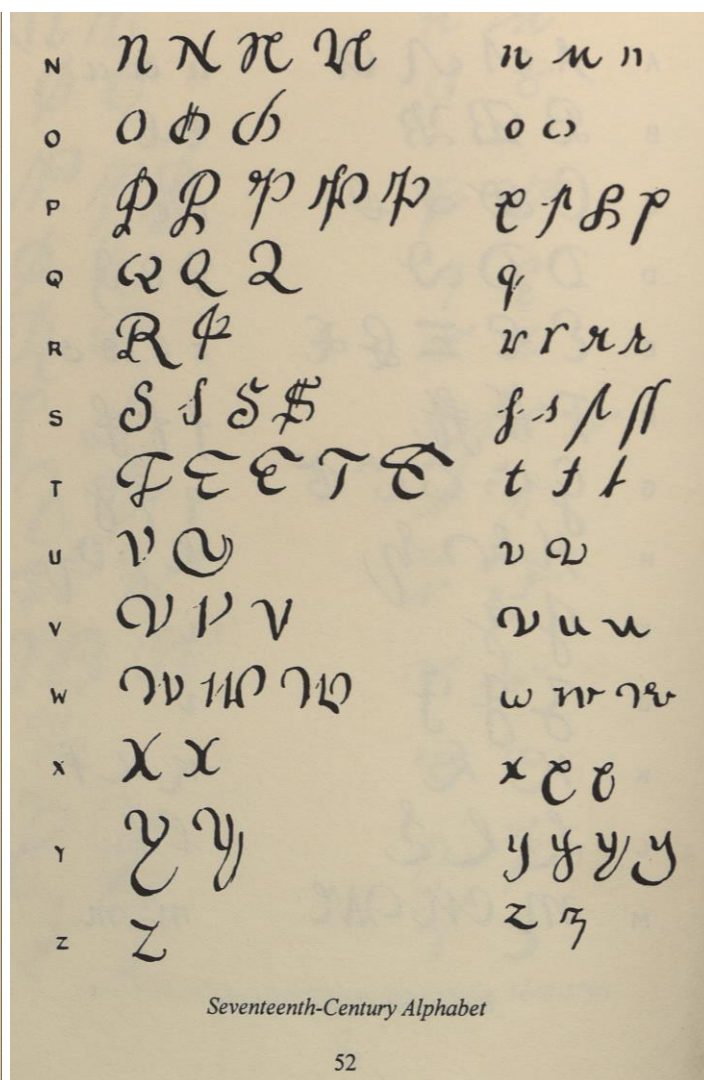 N n N n N n u n
O O O O o ω
P P P P P P p p p p
Q Q Q Q q
R R R r r r r
S S S S S s s s ss
T T T T T T t t t
U V U v v
V V V V v u u
W W W W w w w
X X X x x x
Y Y Y y y y y
Z Z z z
Seventeenth-Century Alphabet
52